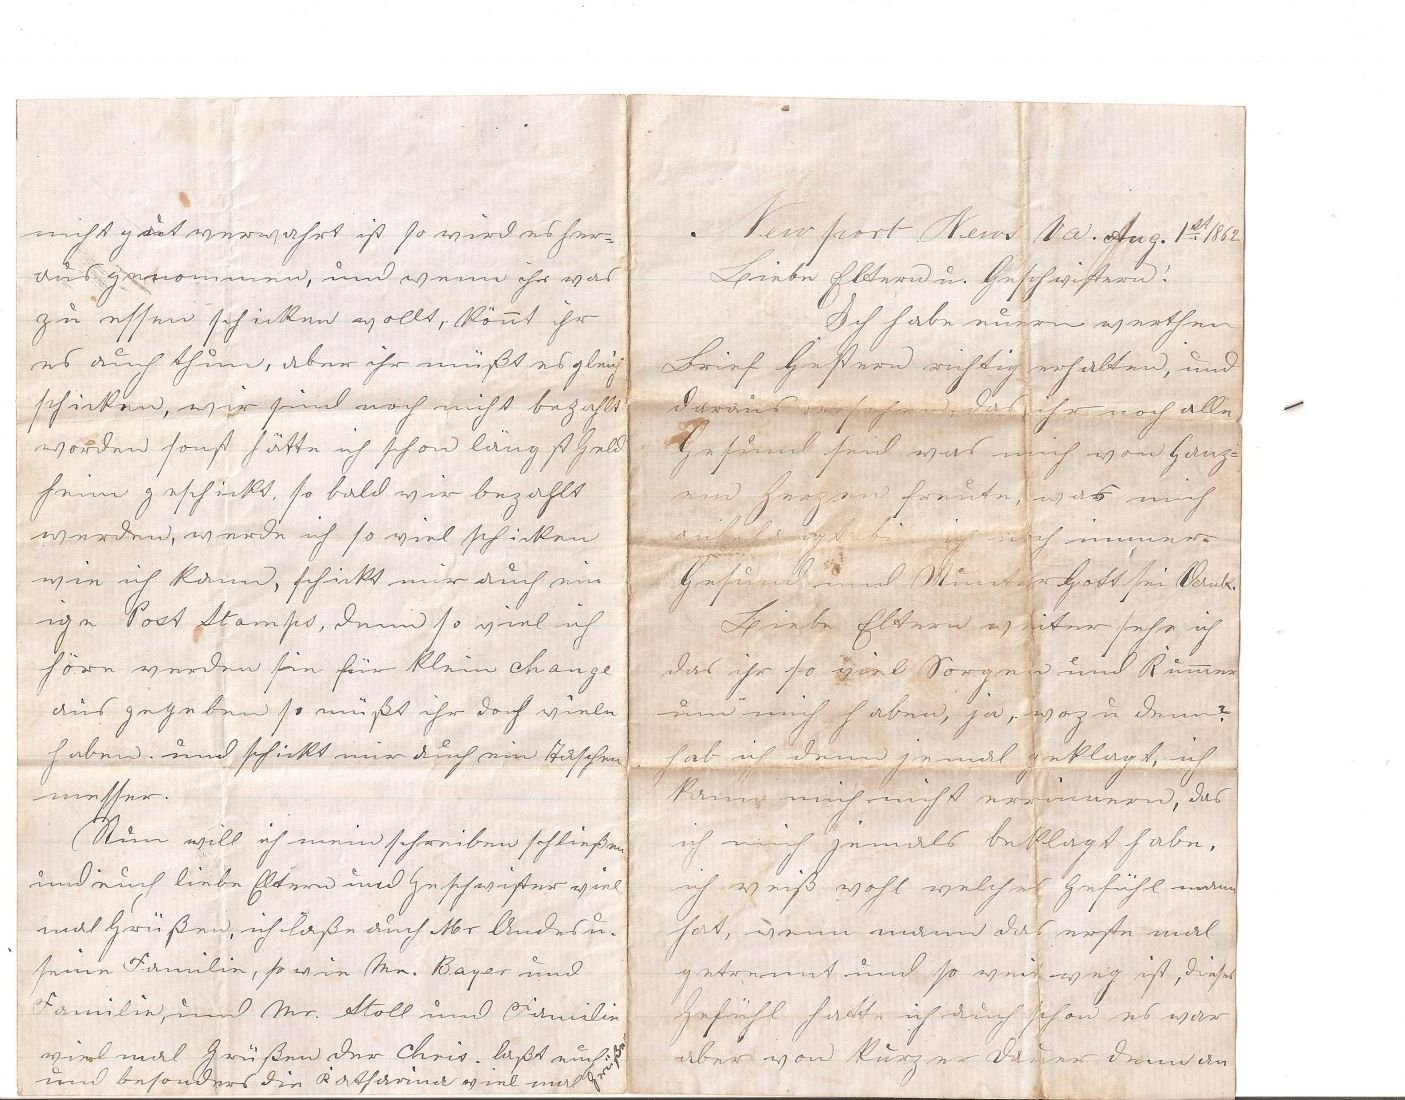 Newport News Va. Aug. 1st 1862
Liebe Eltern u. Geschwistern!
Ich habe euern werthen
Brief Gestern richtig erhalten, und
daraus ersehen, das ihr noch alle
Gesund seid was mich von Ganz=
em Herzen freute, was mich
anbelangt bin ich noch immer
Gesund und Munter Gott sei Dank.
Liebe Eltern weiter sehe ich
das ihr so viel Sorgen und Kummer
um mich haben, ja, wozu denn?
hab ich denn jemal geklagt, ich
kann mich nicht errinnern, das
ich mich jemals beklagt habe,
ich weiß wohl welches Gefühl mann
hat, wenn mann das erste mal
getrennt und so weit weg ist, dieses
Gefühl hatte ich auch schon es war
aber von kurzer Dauer denn an
nicht gut verwahrt ist so wird es her=
aus genommen, und wenn ihr was
zu essen schicken wollt, könnt ihr
es auch thun, aber ihr müßt es gleich
schicken, wir sind noch nicht bezahlt
worden sonst hätte ich schon längst Geld
heim geschickt, so bald wir bezahlt
werden, werde ich so viel schicken
wie ich kann, schickt mir auch ein
ige Post Stamps, denn so viel ich
höre werden sie für klein change
aus gegeben so müßt ihr doch viele
haben. und schickt mir auch ein Taschen
messer.
Nun will ich mein schreiben schließen
und euch liebe Eltern und Geschwister viel
mal Grüßen, ich laße auch Mr Andes u.
seine Familie, so wie Mr. Bayer und
Familie, und Mr. Stoll und Familie
viel mal Grüßen der Chris. laßt euch
und besonders die Katharina viel mal Grüßen